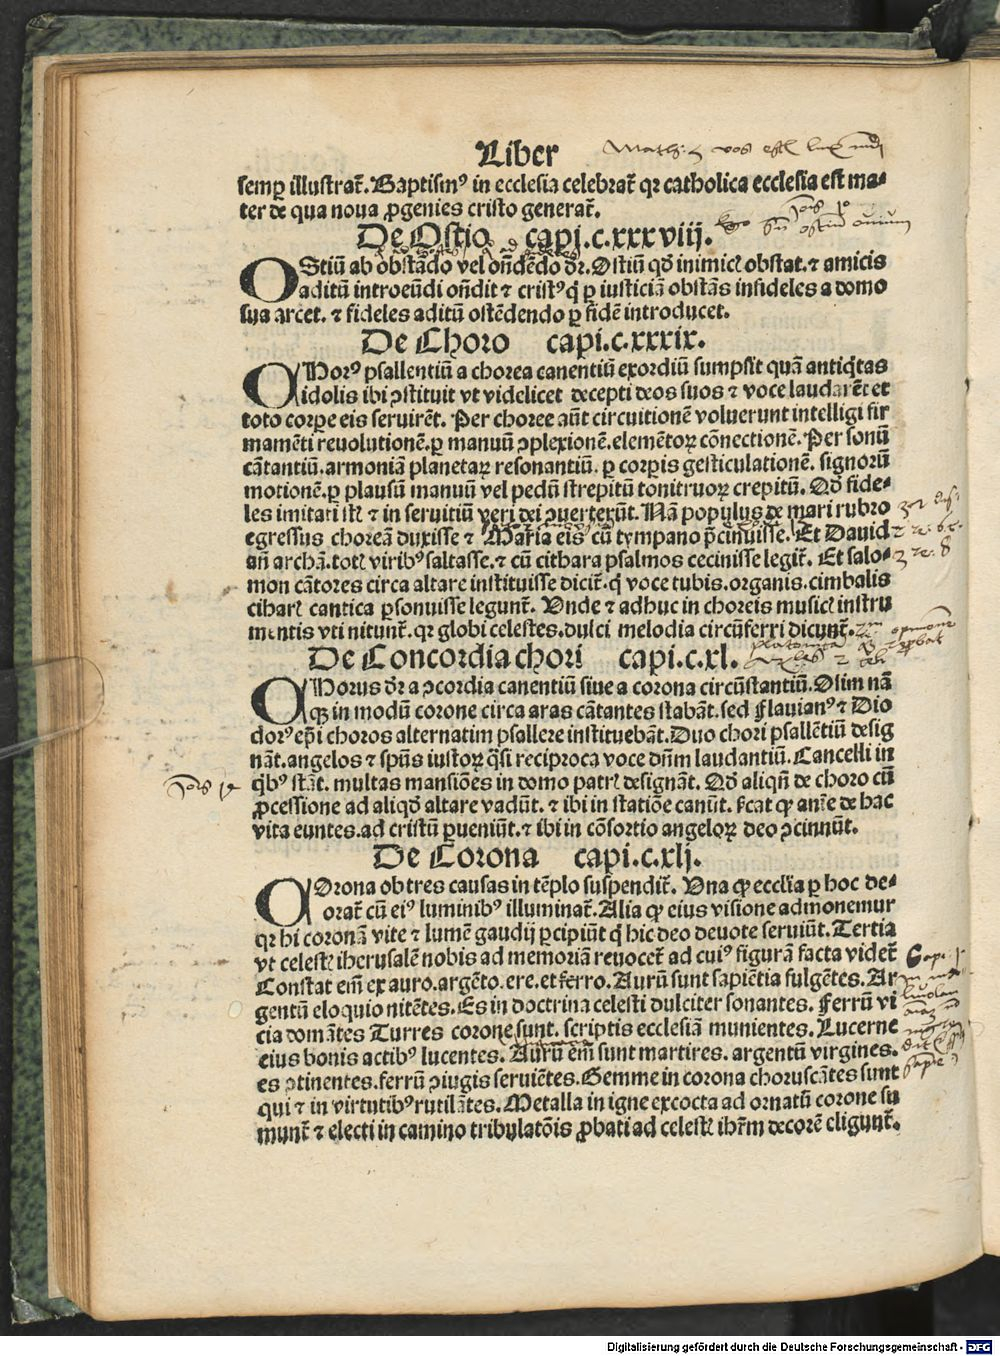 Liber
Math: 5 vos estis lux mundi
semꝑ illustrat̄. Baptismꝰ in ecclesia celebrat̄ qꝛ catholica ecclesia est ma-
ter de qua noua ꝓgenies cristo generat̄.
De Ostio capi.c.xxxviij.
Ego sū ostiū ouium
OStiū ab obstādo vel on̄dēdo dr̄. Ostiū qd̄ inimicꝭ obstat. ⁊ amicis
aditū introeūdi on̄dit ⁊ cristꝰ q̇ ꝑ iusticiā obstās infideles a domo
sua arcet. ⁊ fideles aditū ostēdendo ꝑ fidē introducet.
De Choro capi.c.xxxix.
CHorꝰ psallentiū a chorea canentiū exordiū sumpsit quā antiq̇tas
idolis ibi ꝯstituit vt videlicet decepti deos suos ⁊ voce laudarēt et
toto corꝑe eis seruirēt. Per choree aūt circuitionē voluerunt intelligi fir
mamēti reuolutionē. ꝑ manuū ꝯplexionē. elemētoꝝ cōnectionē. Per sonū
cātantiū. armoniā planetaꝝ resonantiū. ꝑ corꝑis gesticulationē. signorū
motionē. ꝑ plausū manuū vel pedū strepitū tonitruoꝝ crepitū. Qd̄ fide-
les imitati st̄ ⁊ in seruitiū veri dei ꝯuerterūt. Nā populus de mari rubro
egressus choreā duxisse ⁊ Maria eis cū tympano p̄cinuisse. Et Dauid
an̄ archā. totꝭ viribꝰ saltasse. ⁊ cū cithara psalmos cecinisse legit̄. Et salo-
mon cātores circa altare instituisse dicit̄. q̇ voce tubis. organis. cimbalis
citharꝭ cantica ꝑsonuisse legunt̄. Unde ⁊ adhuc in choreis musicꝭ instru
mentis vti nitunt̄. qꝛ globi celestes. dulci melodia circūferri dicunt̄.
De Concordia chori capi.c.xl.
CHorus dr̄ a ꝯcordia canentiū siue a corona circūstantiū. Olim nā
qꝫ in modū corone circa aras cātantes stabāt. sed Flauianꝰ ⁊ Dio
dorꝰ ep̄i choros alternatim psallere instituebāt. Duo chori psallētiū desig
nāt. angelos ⁊ spūs iustoꝝ q̇si reciproca voce dn̄m laudantiū. Cancelli in
q̇bꝰ stāt. multas mansiōes in domo patrꝭ designāt. Qd̄ aliqn̄ de choro cū
ꝓcessione ad aliqd̄ altare vadūt. ⁊ ibi in statiōe canūt. s̄cat qꝙ anīe de hac
vita euntes. ad cristū ꝑueniūt. ⁊ ibi in cōsortio angeloꝝ deo ꝯcinnūt.
De Corona capi.c.xlj.
COrona ob tres causas in tēplo suspendit̄. Una qꝙ eccl̄ia ꝑ hoc de-
corat̄ cū eiꝰ luminibꝰ illuminat̄. Alia qꝙ eius visione admonemur
qꝛ hi coronā vite ⁊ lumē gaudij ꝑcipiūt q̇ hic deo deuote seruiūt. Tertia
vt celestꝭ iherusalē nobis ad memoriā reuocet̄ ad cuiꝰ figurā facta videt̄
Constat em̄ ex auro. argēto. ere. et ferro. Aurū sunt sapiētia fulgētes. Ar
gentū eloquio nitētes. Es in doctrina celesti dulciter sonantes. Ferrū vi
cia domātes Turres corone sunt. scriptis ecclesiā munientes. Lucerne
eius bonis actibꝰ lucentes. Aurū em̄ sunt martires. argentū virgines.
es ꝯtinentes. ferrū ꝯiugis seruiētes. Gemme in corona choruscātes sunt
qui ⁊ in virtutibꝰ rutilātes. Metalla in igne excocta ad ornatū corone su
munt̄ ⁊ electi in camino tribulatōis ꝓbati ad celestꝭ ihr̄m decorē eligunt̄.
Digitalisierung gefördert durch die Deutsche Forschungsgemeinschaft - DFG